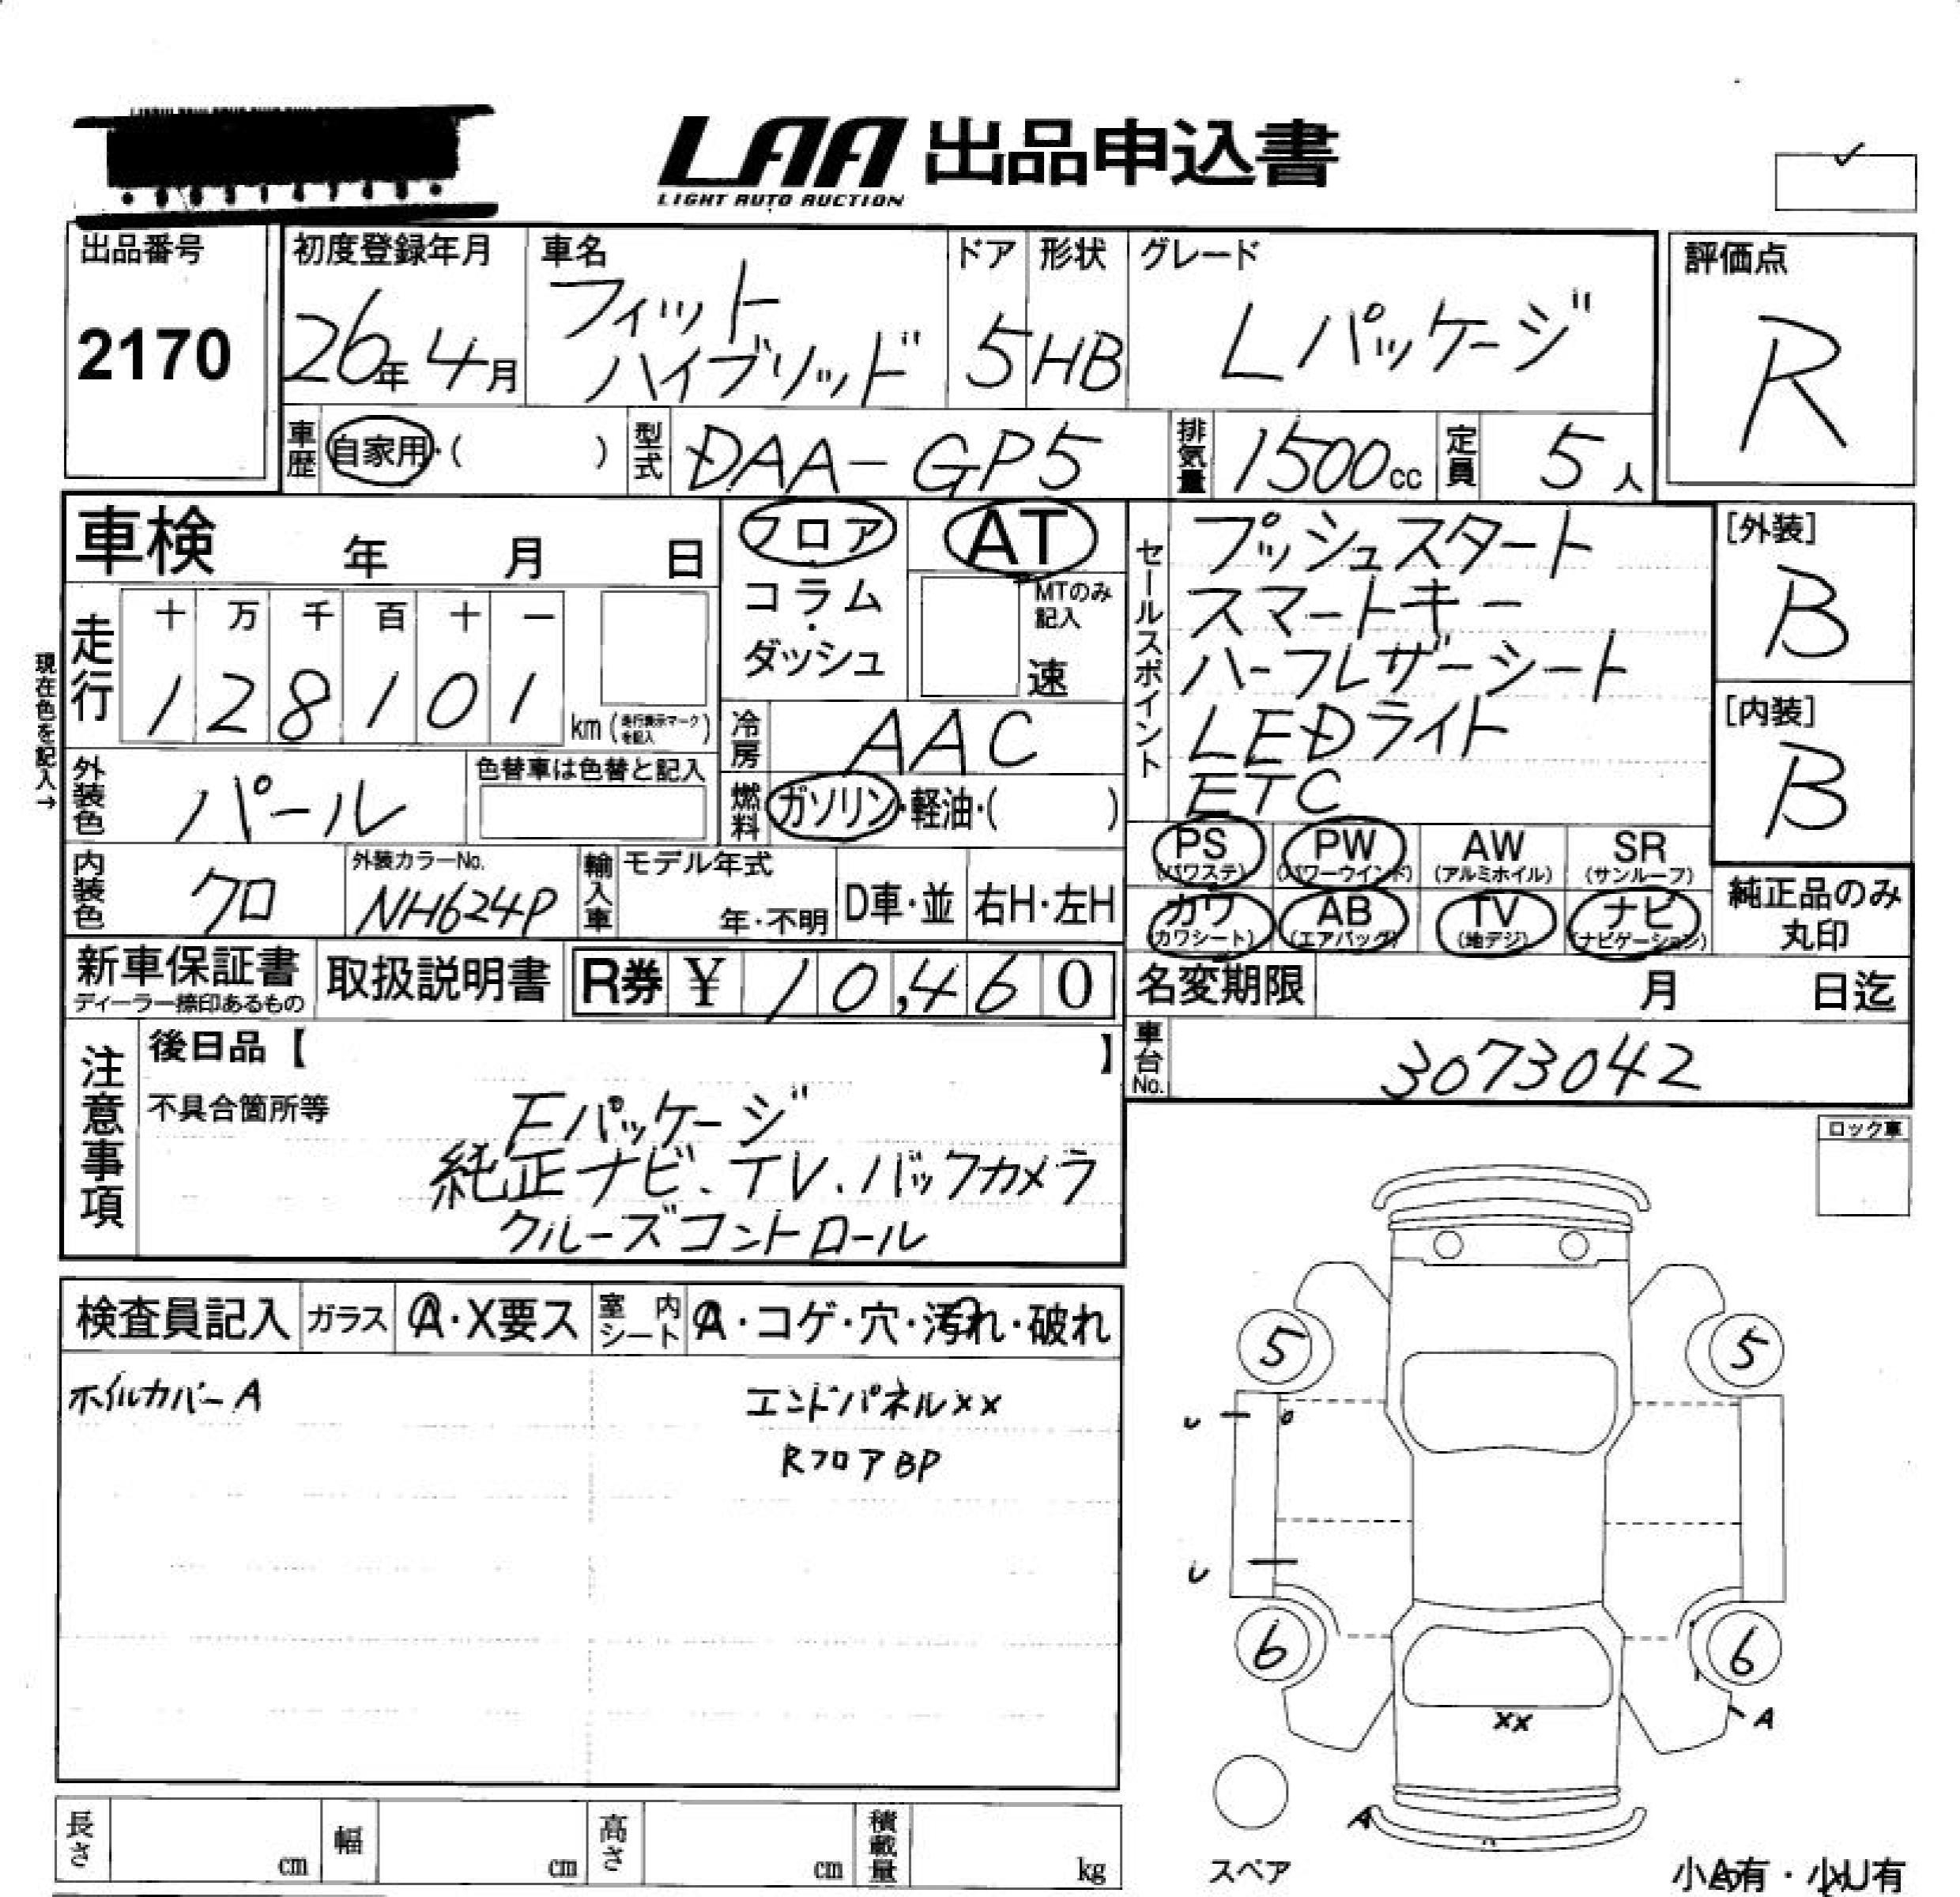 LAA 出品申込書
LIGHT AUTO AUCTION
出品番号
2170
初度登録年月
26年4月
車名
フィット
ハイブリッド
ドア
5
形状
HB
グレード
Lパッケージ
評価点
R
車歴 自家用・( )
型式 DAA-GP5
排気量 1500cc
定員 5人
車検 年 月 日
フロア
コラム
・
ダッシュ
AT
MTのみ
記入
速
現在色を記入→
走行
十 万 千 百 十 一
1 2 8 1 0 1
km (走行表示マークを記入)
冷房 AAC
外装色 パール
色替車は色替と記入
燃料 ガソリン・軽油・( )
セールスポイント
プッシュスタート
スマートキー
ハーフレザーシート
LEDライト
ETC
[外装]
B
[内装]
B
PS
(パワステ)
PW
(パワーウインド)
AW
(アルミホイル)
SR
(サンルーフ)
カワ
(カワシート)
AB
(エアバッグ)
TV
(地デジ)
ナビ
(ナビゲーション)
純正品のみ
丸印
内装色 クロ
外装カラーNo.
NH624P
輸入車
モデル年式
年・不明
D車・並
右H・左H
新車保証書
ディーラー捺印あるもの
取扱説明書
R券 ¥ 10,460
名変期限 月 日迄
車台No. 3073042
注意事項
後日品【 】
不具合箇所等
Fパッケージ
純正ナビ、TV、バックカメラ
クルーズコントロール
ロック車
検査員記入
ガラス
A・X要ス
室内シート
A・コゲ・穴・汚れ・破れ
ホイルカバーA
エンドパネルXX
RフロアBP
5
5
U
U
6
6
XX
A
A
スペア
小A有・小U有
長さ cm
幅 cm
高さ cm
積載量 kg